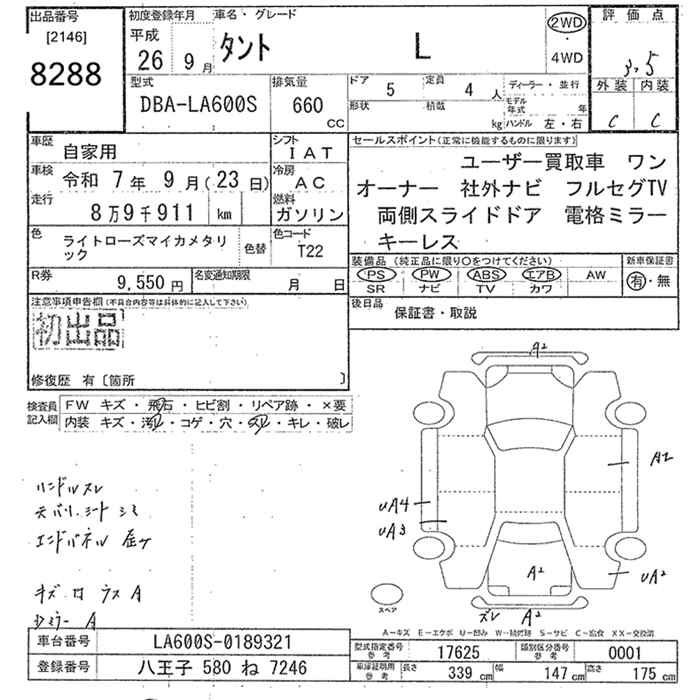 出品番号
[2146]
8288
初度登録年月
平成
26 9月
車名・グレード
タント L
2WD
・
4WD
評価点
3.5
外装 内装
C C
型式
DBA-LA600S
排気量
660
CC
ドア 5 定員 4人
形状 積載 kg
ディーラー・並行
モデル年式 年
ハンドル 左・右
車歴 自家用
シフト IAT
車検 令和 7年 9月(23日)
冷房 AC
走行 8万9千911 km
燃料 ガソリン
色 ライトローズマイカメタリック
色替
色コード T22
R券 9,550円
名変通知期限 月 日
セールスポイント(正常に機能するものに限ります)
ユーザー買取車 ワン
オーナー 社外ナビ フルセグTV
両側スライドドア 電格ミラー
キーレス
装備品 (純正品に限り○をつけてください)
PS PW ABS エアB AW
SR ナビ TV カワ
新車保証書
有・無
後日品 保証書・取説
注意事項申告欄(不具合内容等は具体的に記入して下さい)
初出品
修復歴 有〔箇所 〕
検査員記入欄
FW キズ・飛石・ヒビ割・リペア跡・×要
内装 キズ・汚れ・コゲ・穴・スレ・キレ・破レ
ハンドルスレ
天バリ、シート シミ
エンドパネル 歪ケ
A2
A2
UA4
UA3
A2
UA2
スレ A2
スペア
A-キズ E-エクボ U-凹み W-補修跡 S-サビ C-腐食 XX-交換済
車台番号 LA600S-0189321
登録番号 八王子 580 ね 7246
型式指定番号 参考 17625
類別区分番号 参考 0001
車庫証明用 参考 長さ 339cm 幅 147cm 高さ 175cm